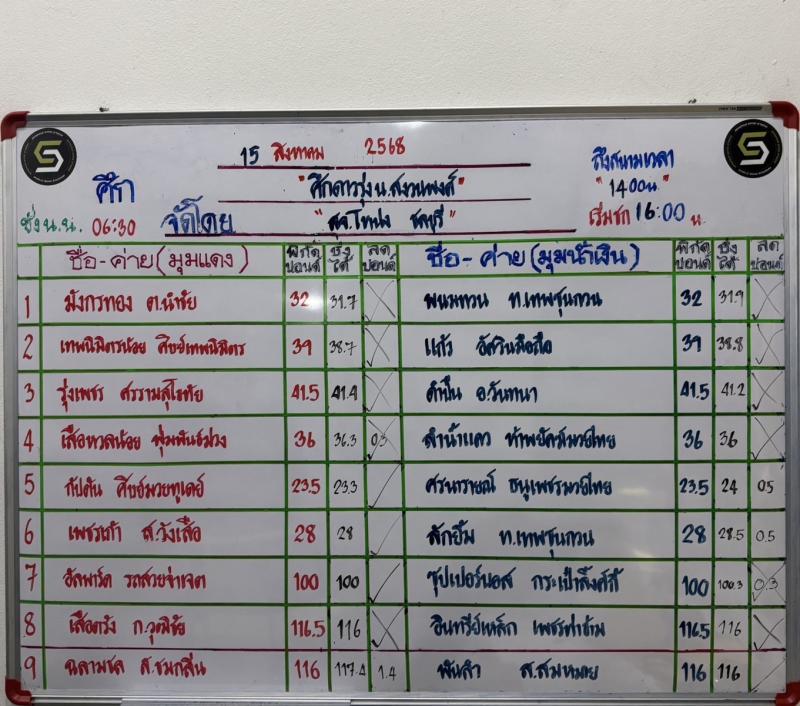 15 สิงหาคม 2568
ศึก "ศึกดาวรุ่ง น.สงวนพงศ์"
ถึงสนามเวลา
"1400น."
ชั่งน.น. 06:30 จัดโดย "สจ.โทน่ง ชลบุรี"
เริ่มชก 16:00 น.
ชื่อ-ค่าย (มุมแดง) พิกัดปอนด์ ชั่งได้ ลดปอนด์ ชื่อ-ค่าย (มุมน้ำเงิน) พิกัดปอนด์ ชั่งได้ ลดปอนด์
1 มังกรทอง ต.นำชัย 32 31.7 พนมทวน ท.เทพชุนกวน 32 31.9
2 เทพนิมิตรน้อย ศิษย์เทพนิมิตร 39 38.7 แก้ว อัศวินมือถือ 39 38.8
3 รุ่งเพชร ศรรามสุโขทัย 41.5 41.4 ดำปื้น อ.วันทนา 41.5 41.2
4 เสือหวลน้อย พุ่มพันธ์ม่วง 36 36.3 0.3 ลำน้ำแคว ท้าพยัคฆ์มวยไทย 36 36
5 กัปตัน ศิษย์มวยทูเดย์ 23.5 23.3 ศรนารายณ์ ธนูเพชรมวยไทย 23.5 24 0.5
6 เพชรเก้า ส.วังเสือ 28 28 ลักยิ้ม ท.เทพชุนกวน 28 28.5 0.5
7 อัลพาร์ด รถสวยจ่าเจต 100 100 ซุปเปอร์บอส กระเป๋าลิ้งค์กี้ 100 100.3 0.3
8 เสือดรัง ก.วุฒิชัย 116.5 116 อินทรีย์เหล็ก เพชรท่าข้าม 116.5 116
9 ฉลามชล ส.ชมกลิ่น 116 117.4 1.4 พันลำ ส.สมหมาย 116 116